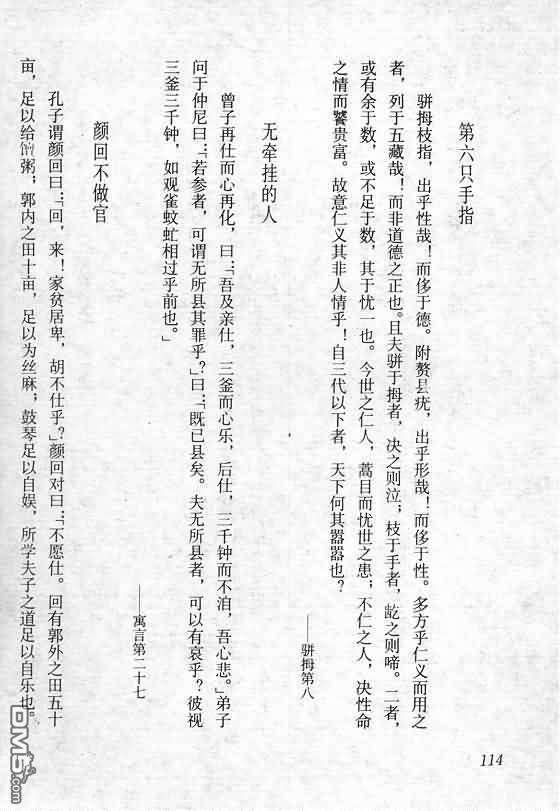 第六只手指
骈拇枝指，出乎性哉！而侈于德。附赘县疣，出乎形哉！而侈于性。多方乎仁义而用之
者，列于五藏哉！而非道德之正也。且夫骈于拇者，决之则泣；枝于手者，龁之则啼。二者，
或有余于数，或不足于数，其于忧一也。今世之仁人，蒿目而忧世之患；不仁之人，决性命
之情而饕贵富。故意仁义其非人情乎！自三代以下者，天下何其嚣嚣也？
——骈拇第八
无牵挂的人
曾子再仕而心再化，曰：「吾及亲仕，三釜而心乐，后仕，三千钟而不洎，吾心悲。」弟子
问于仲尼曰：「若参者，可谓无所县其罪乎？」曰：「既已县矣。夫无所县者，可以有哀乎？彼视
三釜三千钟，如观雀蚊虻相过乎前也。」
——寓言第二十七
颜回不做官
孔子谓颜回曰：「回，来！家贫居卑，胡不仕乎？」颜回对曰：「不愿仕。回有郭外之田五十
亩，足以给粥；郭内之田十亩，足以为丝麻；鼓琴足以自娱，所学夫子之道足以自乐也。
114
DM5